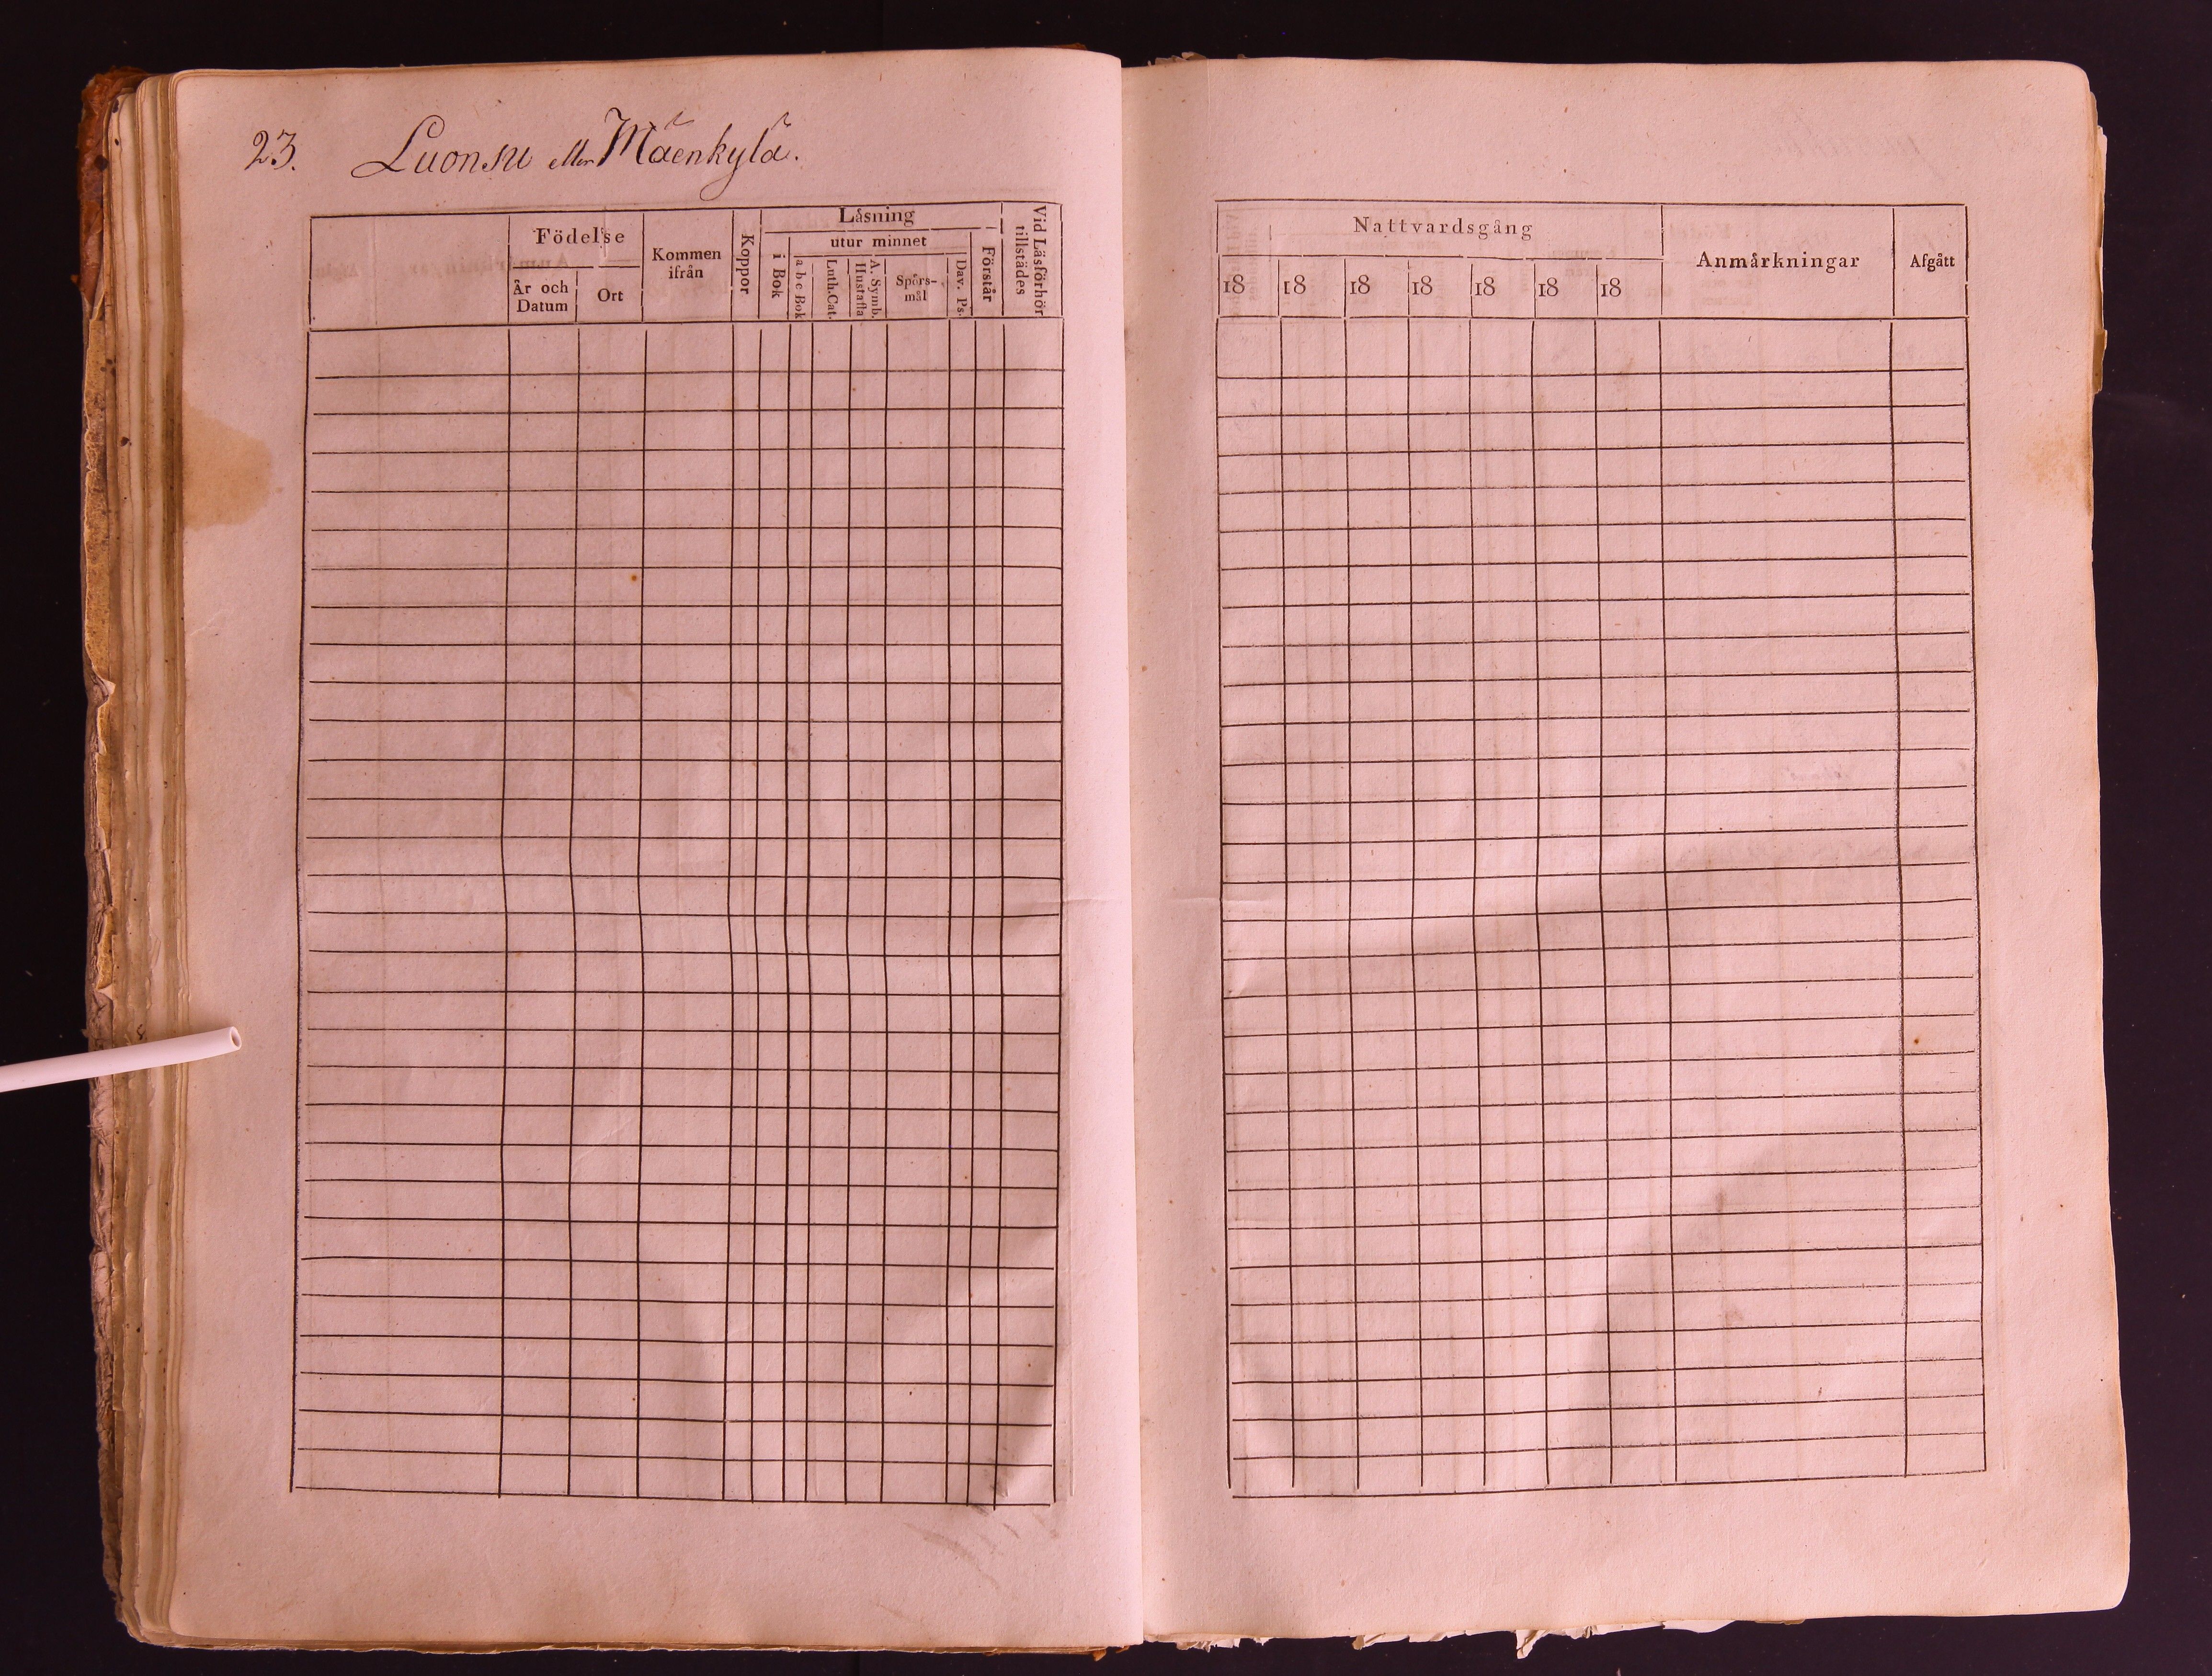 23. Luonsu eller Mäenkylä.
Födelse
År och Datum
Ort
Kommen ifrån
Koppor
Läsning
utur minnet
i Bok
a b c Bok
Luth. Cat.
A. Symb. Hustafla
Spörs-mål
Dav. Ps.
Förstår
Vid Läsförhör tillstädes
Nattvardsgång
18 18 18 18 18 18 18
Anmärkningar
Afgått